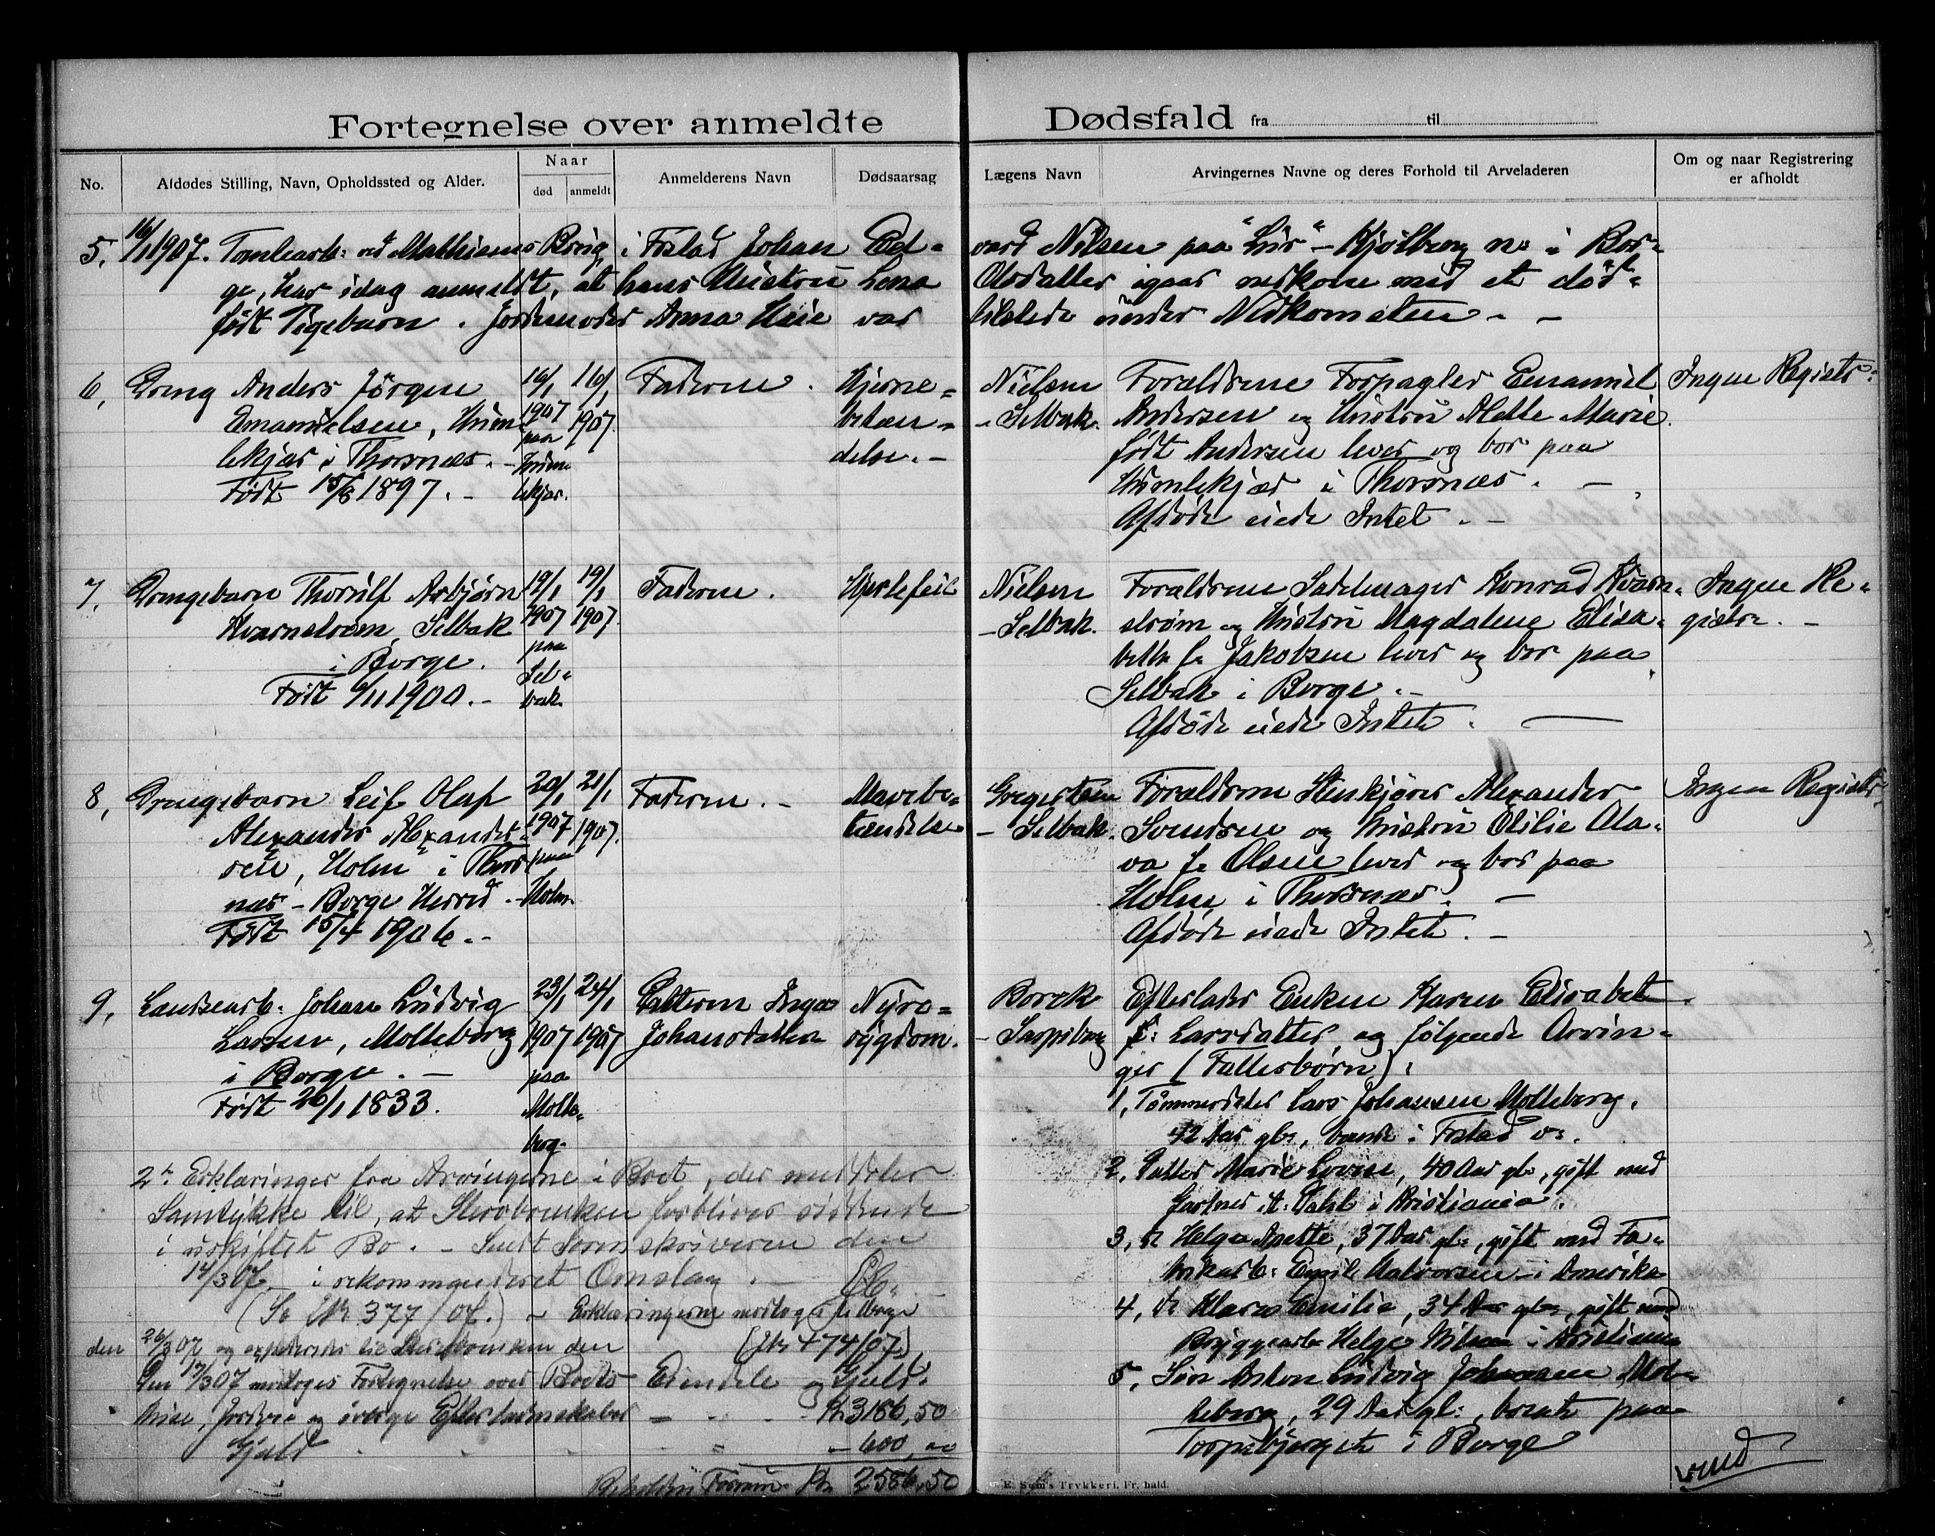 Fortegnelse over anmeldte Dødsfald fra til
No.
Afdødes Stilling, Navn, Opholdssted og Alder.
Naar
død
anmeldt
Anmelderens Navn
Dødsaarsag
Lægens Navn
Arvingernes Navne og deres Forhold til Arveladeren
Om og naar Registrering
er afholdt
5, 16/1 1907. Tomtearb: ved Mathiesens Brug, i Fstad Johan Ed-
vard Nilsen paa "Lur" - Kjølberg n: i Bor-
ge, har idag anmeldt, at hans Hustru Lena
Olsdatter igaar nedkom med et død-
født Pigebarn. Jordemoder Anna Heie var
tilstede under Nedkomsten. -
6, Dreng Anders Jørgen
Emanuelsen, Hum-
lekjær i Thorsnæs. -
Født 15/8 1897. -
16/1
1907
paa
Hum-
lekjær.
16/1
1907.
Faderen.
Hjerne-
betæn-
delse. -
Nielsen
- Selbak.
Forældrene Forpagter Emanuel
Andersen og Hustru Alette Marie
født Andersen lever og bor paa
Humlekjær i Thorsnæs. -
Afdøde eiede Intet. -
Ingen Registr:
7, Drengebarn Thorulf Asbjørn
Kvarnstrøm, Selbak
i Borge.
Født 6/11 1900. -
19/1
1907
paa
Sel-
bak.
19/1
1907.
Faderen.
Hjertefeil
Nielsen
- Selbak.
Forældrene Sadelmager Konrad Kvarn-
strøm og Hustru Magdalene Elisa-
beth f. Jakobsen lever og bor paa
Selbak i Borge. -
Afdøde eiede Intet. -
Ingen Re-
gistre. -
8, Drengebarn Leif Olaf
Alexander Alexander-
sen, "Holm" i Thors
næs - Borge Herred. -
Født 15/4 1906. -
20/1
1907
paa
Holm.
21/1
1907.
Faderen. -
Mavebe-
tændelse
Gregersen
- Selbak.
Forældrene Stenkjører Alexander
Svendsen og Hustru Otilie Ola-
va f. Olsen lever og bor paa
Holm i Thorsnæs. -
Afdøde eiede Intet. -
Ingen Registr.
9, Landsearb. Johan Ludvig
Larsen, Molteberg
i Borge. -
Født 26/1 1833.
23/1
1907
paa
Molte-
berg.
24/1
1907
Datteren Inga
Johansdatter
Nyre-
sygdom.
Borck
- Sarpsborg
Efterlader Enken Karen Elisabet
f: Larsdatter, og følgende Arvin-
ger (Fællesbørn):
1, Tømmerdeler Lars Johansen Molteberg.
42 Aar gl:, boende i Fstad v:.
2, Datter Marie Lovise, 40 Aar gl:, gift med
Gartner A. Dahl i Kristiania.
3, dr Helga Anette, 37 Aar gl:, gift med Fa-
brikarb: Emil Halvorsen i Amerika
4, dr Klara Emilie, 34 Aar gl:, gift med
Bryggearb Helge Nilsen i Kristiania
5, Søn Anton Ludvig Johansen Mol-
teberg, 29 Aar gl:, boende paa
Torpebjerget i Borge
vend
2de Erklæringer fra Arvingerne i Boet, der meddeler
Samtykke til, at Stervboenken forbliver siddende
i uskiftet Bo. - Sendt Sorenskriveren den
14/3 07 i rekommanderet Omslag. -
(Se No 377/07.) - Erklæringerne modtoges tilbage
den 26/3 07 og expederedes til Stervboenken den (No 474/07)
Den 13/3 07 modtoges Fortegnelse over Boets Eiendele og Gjæld.
Huse, Jordvei og øvrige Efterladenskaber - Kr 3186,50
Gjæld " - 600,00
Beholden Formue Kr 2586,50
E. Sem's Trykkeri, Fr.hald.